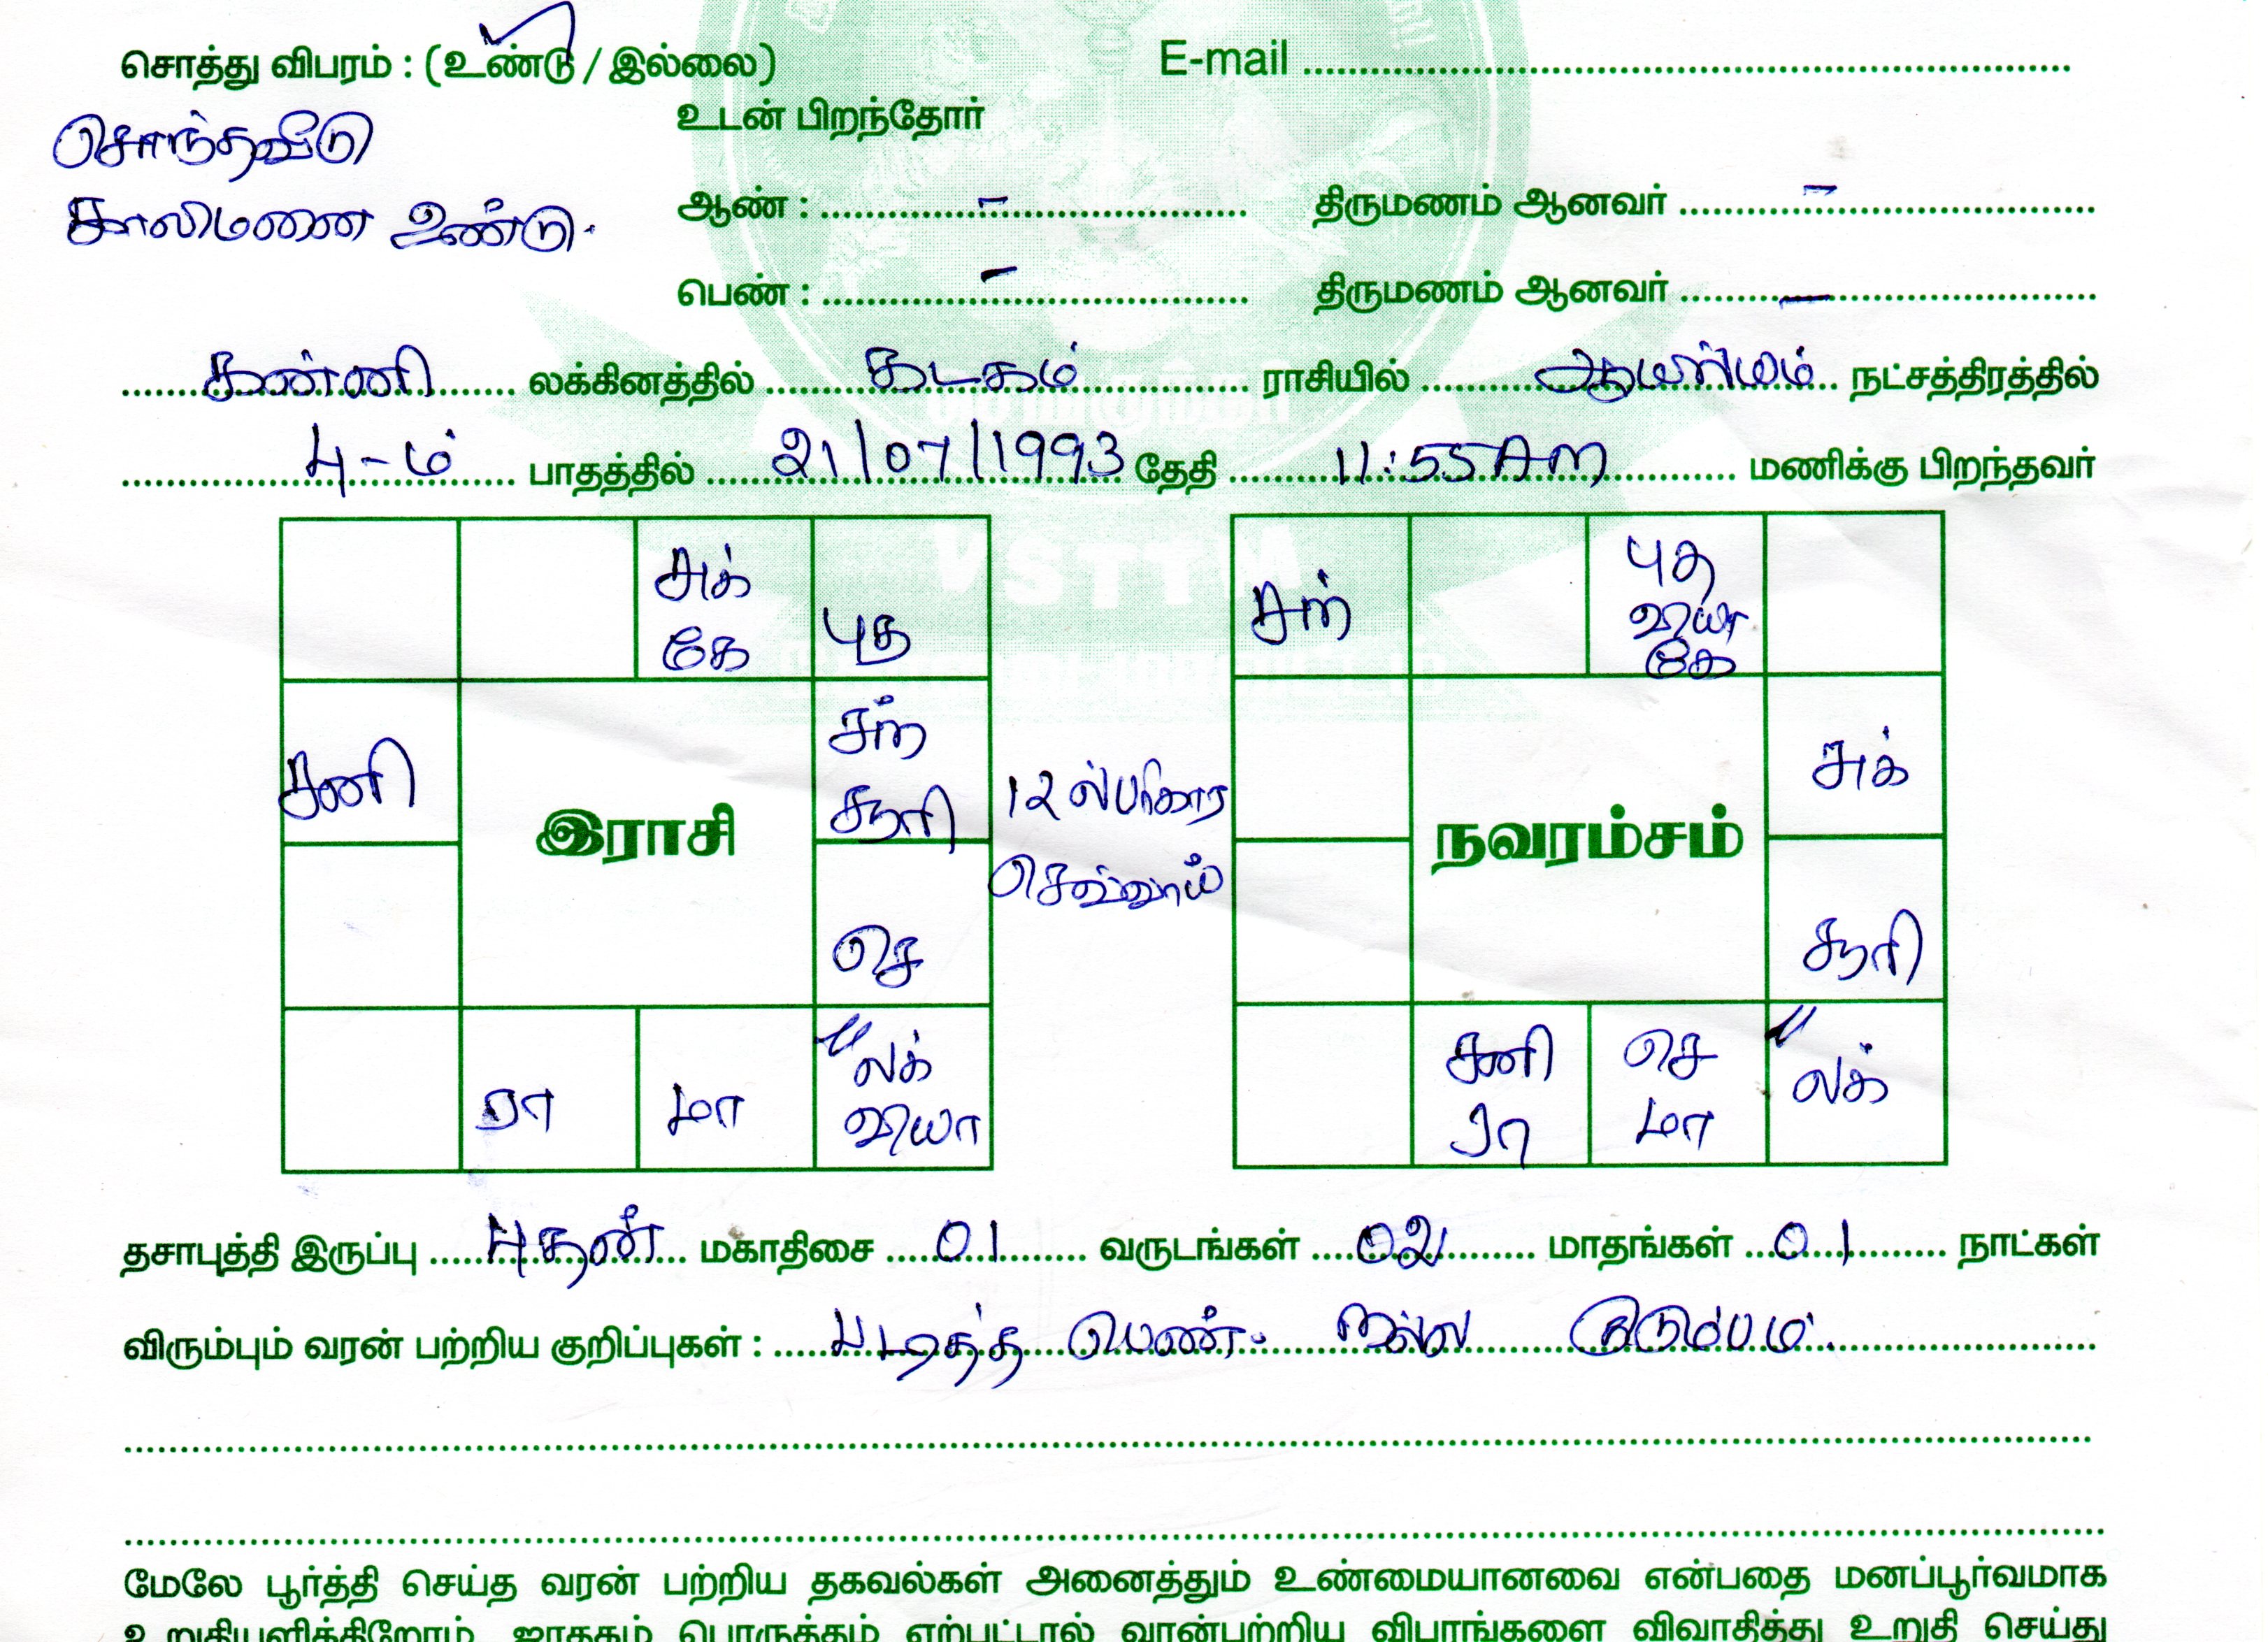 சொத்து விபரம் : (உண்டு / இல்லை) E-mail
உடன் பிறந்தோர்
சொந்தவீடு
காலிமனை உண்டு.
ஆண் : - திருமணம் ஆனவர் -
பெண் : - திருமணம் ஆனவர் -
கன்னி லக்கினத்தில் கடகம் ராசியில் ஆயில்யம் நட்சத்திரத்தில்
4-ம் பாதத்தில் 21/07/1993 தேதி 11:55 Am மணிக்கு பிறந்தவர்
VSTTM
சுக் கே
புத
சனி
சந் சூரி
இராசி
செ
ரா
மா
லக் வியா
12ல் பரிகார
செவ்வாய்
சந்
புத வியா கே
சுக்
நவரம்சம்
சூரி
சனி ரா
செ மா
லக்
தசாபுத்தி இருப்பு புதன் மகாதிசை 01 வருடங்கள் 02 மாதங்கள் 01 நாட்கள்
விரும்பும் வரன் பற்றிய குறிப்புகள் : படித்த பெண். நல்ல குடும்பம்.
மேலே பூர்த்தி செய்த வரன் பற்றிய தகவல்கள் அனைத்தும் உண்மையானவை என்பதை மனப்பூர்வமாக
உறுதியளிக்கிறோம். ஜாதகம் பொருத்தம் ஏற்பட்டால் வரன்பற்றிய விபரங்களை விவாதித்து உறுதி செய்து